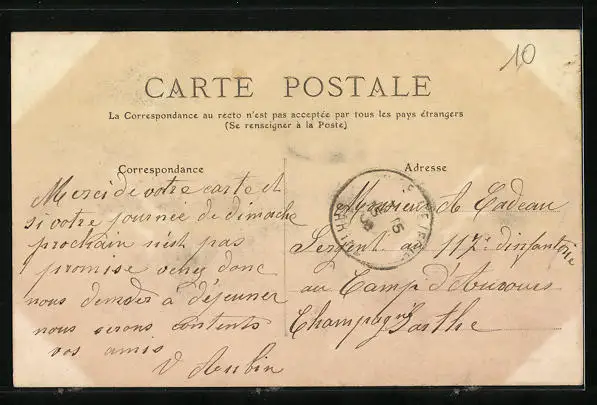 10
CARTE POSTALE
La Correspondance au recto n'est pas acceptée par tous les pays étrangers
(Se renseigner à la Poste)
Correspondance
Merci de votre carte et
si votre journée de dimanche
prochain n'est pas
promise venez donc
nous demander à déjeuner
nous serons contents
vos amis
V Aubin
Adresse
Monsieur A Cadeau
Sergent au 117e d'infanterie
au Camp d'Auvours
Champagné Sarthe
15